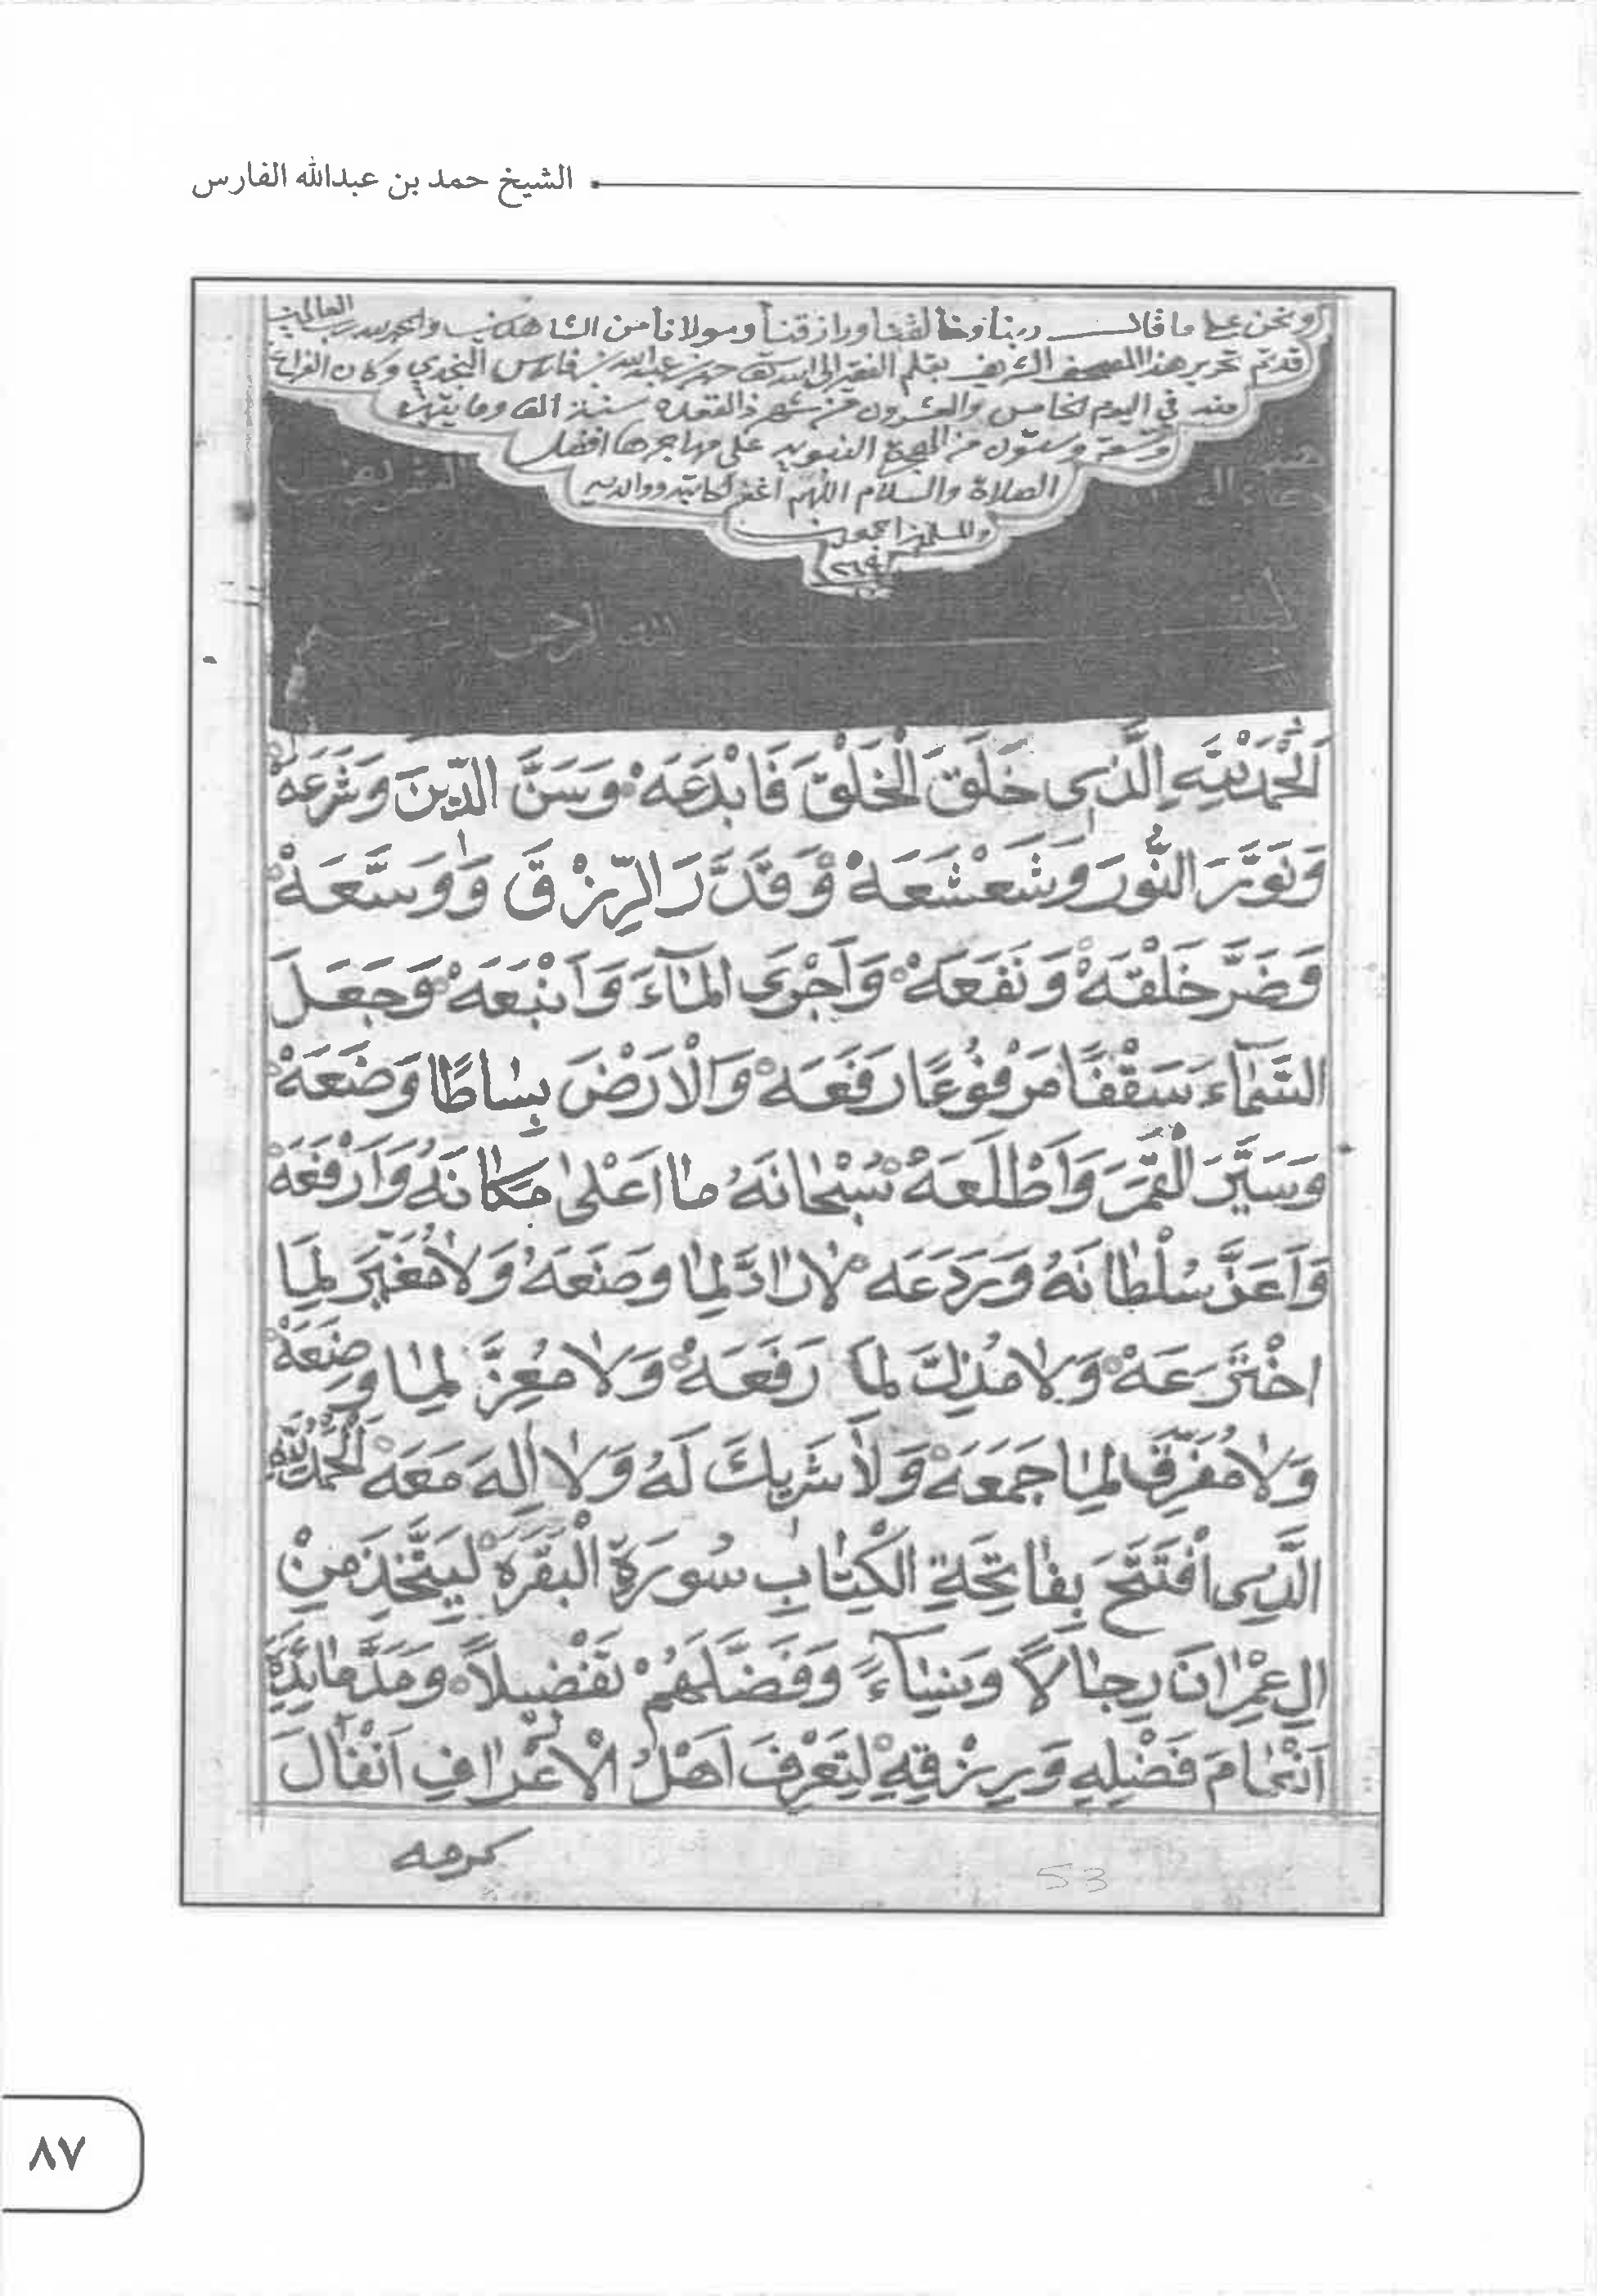 الشيخ حمد بن عبدالله الفارس
ونحن على ما قال ربنا وخالقنا ورازقنا ومولانا من الشاهدين والحمد لله رب العالمين
قد تم تحرير هذا المصحف الشريف بقلم الفقير الى الله تعالى حمد بن عبدالله بن فارس النجدي وكان الفراغ
منه في اليوم الخامس والعشرون من شهر ذالقعده سنة الف ومايتين
وتسعة وستون من الهجرة النبويه على مهاجرها افضل
الصلاة والسلام اللهم اغفر لكاتبه ووالديه
والمسلمين اجمعين
الشريف
الله الرحمن
اَلْحَمْدُ لِلَّهِ الَّذِى خَلَقَ الْخَلْقَ فَابْدَعَهْ وَسَنَّ الدِّينَ وَشَرَعَهْ
وَنَوَّرَ النُّورَ وَشَعْشَعَهْ وَقَدَّرَ الرِّزْقَ وَوَسَّعَهْ
وَضَرَّ خَلْقَهْ وَنَفَعَهْ وَاَجْرَى الْمَآءَ وَاَنْبَعَهْ وَجَعَلَ
السَّمَآءَ سَقْفًا مَرْفُوعًا رَفَعَهْ وَالْاَرْضَ بِسَاطًا وَضَعَهْ
وَسَيَّرَ الْقَمَرَ وَاَطْلَعَهْ سُبْحَانَهُ مَا اَعْلٰى مَكَانَهُ وَاَرْفَعَهْ
وَاَعَزَّ سُلْطَانَهُ وَرَدَعَه لَا رَادَّ لِمَا وصَنَعَهُ وَلَا مُغَيِّرَ لِمَا
اخْتَرَعَهْ وَلَا مُذِلَّ لِمَا رَفَعَهْ وَلَا مُعِزَّ لِمَا وَضَعَهْ
وَلَا مُفَرِّقَ لِمَا جَمَعَهْ وَلَا شَرِيكَ لَهُ وَلَا اِلٰهَ مَعَهْ اَلْحَمْدُ لِلَّهِ
الَّذِى افْتَتَحَ بِفَاتِحَةِ الْكِتَابِ سُورَةِ الْبَقَرَهْ لِيَتَّخِذَ مِنْ
اٰلِ عِمْرَانَ رِجَالًا وَنِسَاءً وَفَضَّلَهُمْ تَفْضِيلًا وَمَدَّ مَائِدَةَ
اَنْعَامَ فَضْلِهِ وَرِزْقِهْ لِيَعْرِفَ اَهْلُ الْاَعْرَافِ اَنْفَالَ
كرمه
53
٨٧